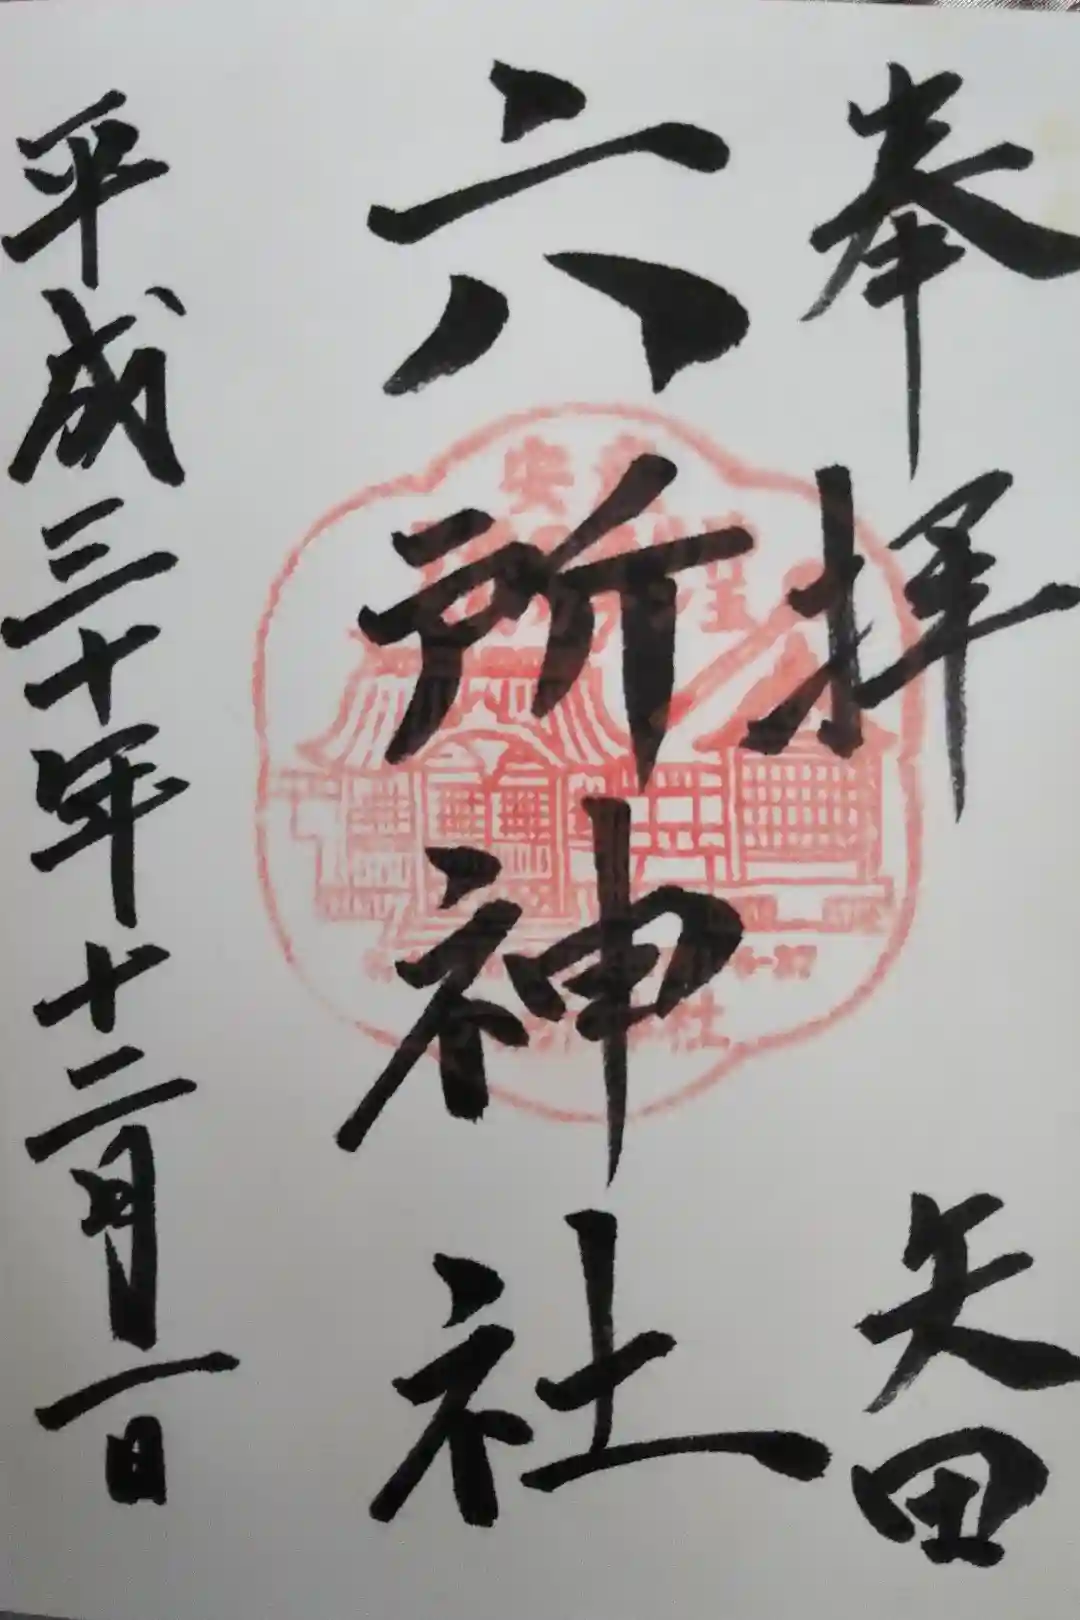 奉拝
矢田
六所神社
平成三十年十二月一日